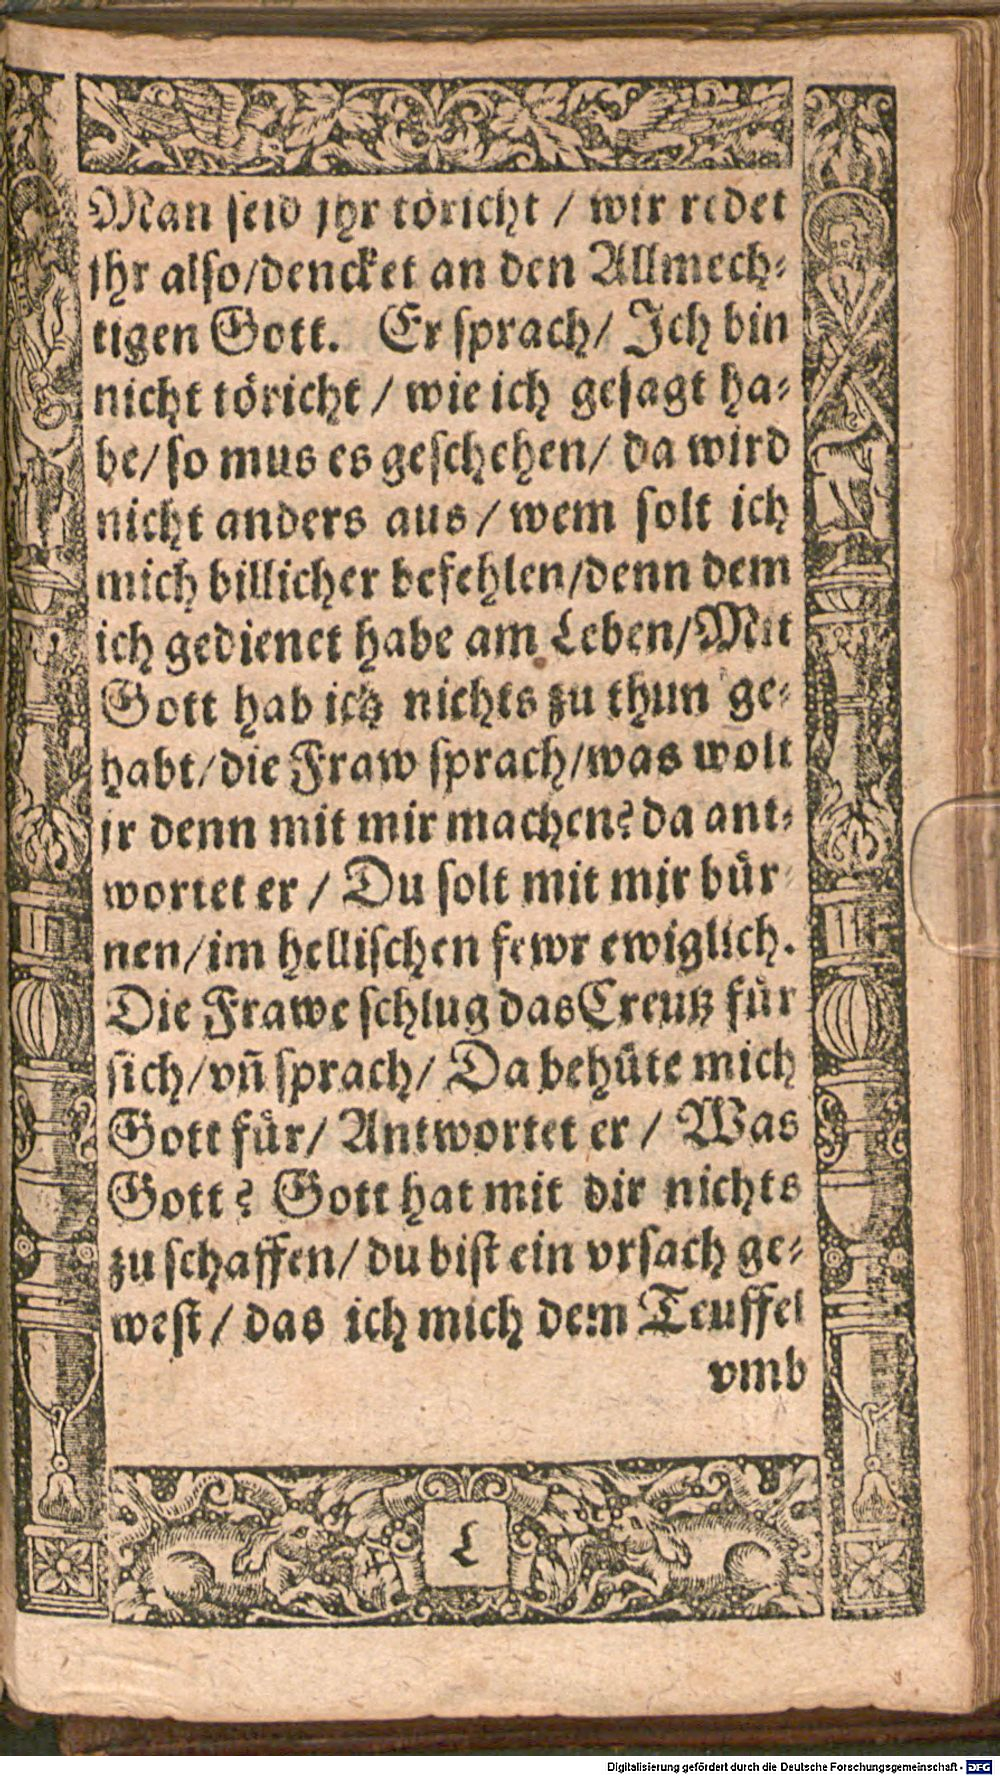 Man seid jhr töricht / wir redet
jhr also/dencket an den Allmech⸗
tigen Gott. Er sprach/ Ich bin
nicht töricht / wie ich gesagt ha⸗
be/ so mus es geschehen/ da wird
nicht anders aus / wem solt ich
mich billicher befehlen/denn dem
ich gedienet habe am Leben/Mit
Gott hab ich nichts zu thun ge⸗
habt/die Fraw sprach/was wolt
jr denn mit mir machen? da ant⸗
wortet er / Du solt mit mir bür⸗
nen/im hellischen fewr ewiglich.
Die Frawe schlug das Creutz für
sich/vñ sprach/ Da behüte mich
Gott für/ Antwortet er / Was
Gott? Gott hat mit dir nichts
zu schaffen/ du bist ein vrsach ge⸗
west / das ich mich dem Teuffel
vmb
L
Digitalisierung gefördert durch die Deutsche Forschungsgemeinschaft - DFG